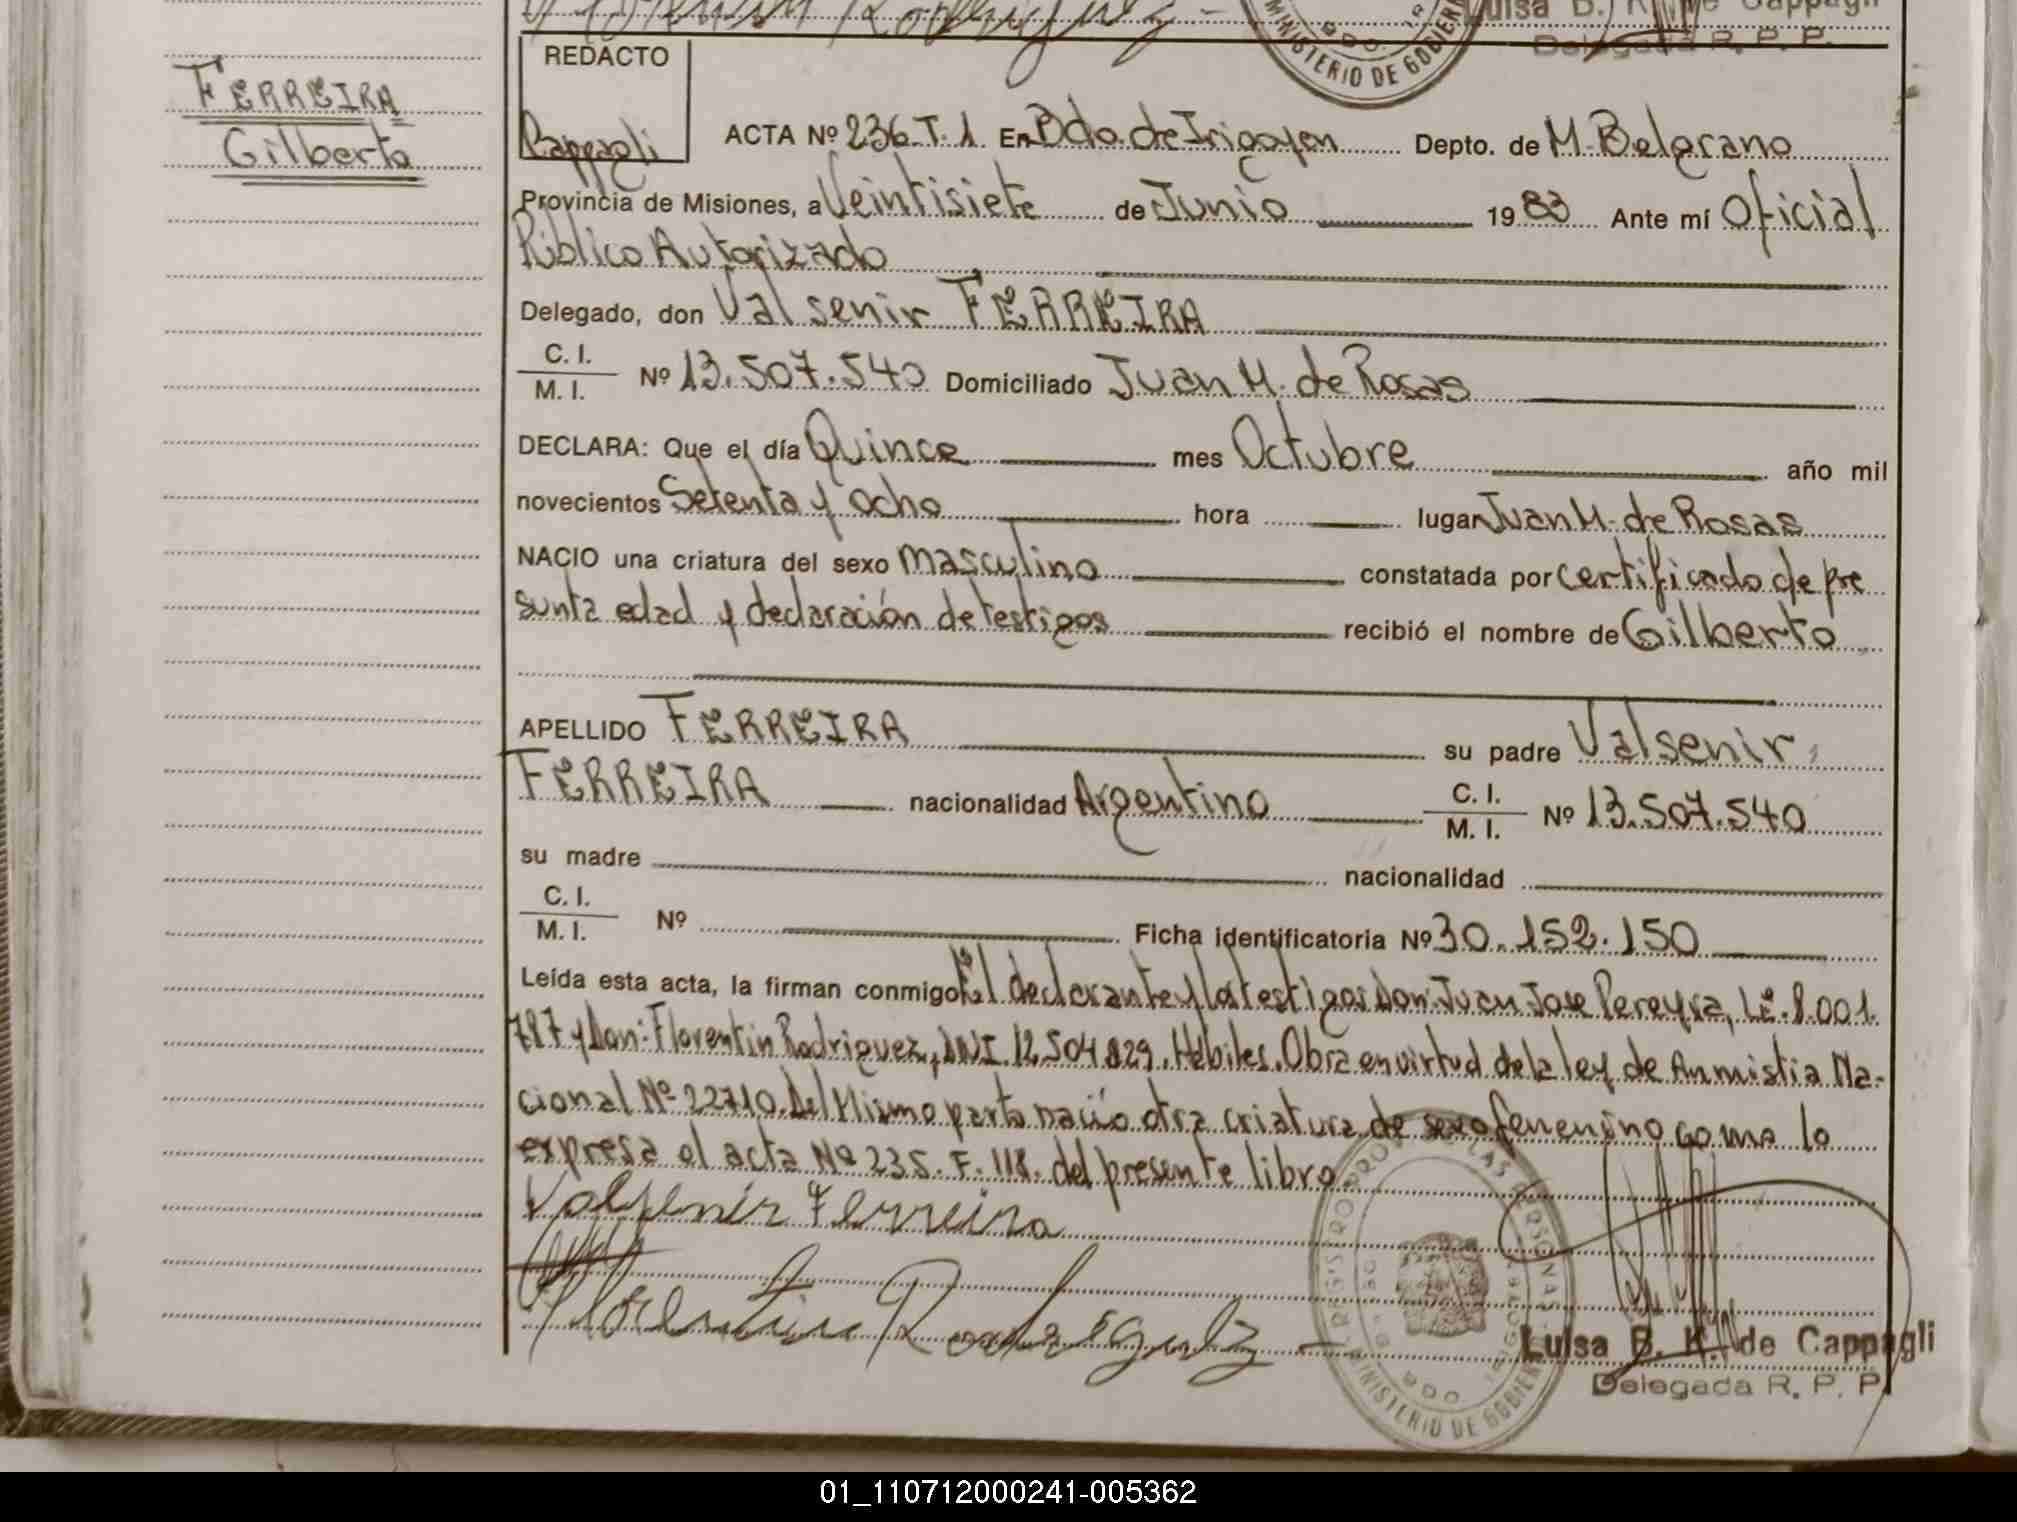 Luisa B. K. de Cappagli
Delegada R. P. P.
MINISTERIO DE GOBIERNO
REDACTO
Cappagli
FERREIRA
Gilberto
ACTA Nº 236. T. 1. En Bdo. de Irigoyen Depto. de M. Belgrano
Provincia de Misiones, a Veintisiete de Junio 1983 Ante mí Oficial
Público Autorizado
Delegado, don Valsenir FERREIRA
C. I.
M. I. Nº 13.507.540 Domiciliado Juan M. de Rosas
DECLARA: Que el día Quince mes Octubre año mil
novecientos Setenta y ocho hora lugar Juan M. de Rosas
NACIO una criatura del sexo masculino constatada por certificado de pre
sunta edad y declaración de testigos recibió el nombre de Gilberto
APELLIDO FERREIRA su padre Valsenir
FERREIRA nacionalidad Argentino C. I.
M. I. Nº 13.507.540
su madre nacionalidad
C. I.
M. I. Nº Ficha identificatoria Nº 30.152.150
Leída esta acta, la firman conmigo El declarante y los testigos Don: Juan Jose Pereyra, L.E. 8.001.
787 y Don: Florentin Rodriguez, DNI. 12.504.829. Hábiles. Obra en virtud de la ley de Anmistia Na-
cional Nº 22710. Del Mismo parto nació otra criatura de sexo femenino como lo
expresa el acta Nº 235. F. 118. del presente libro
Valsenir Ferreira
Florentin Rodriguez
REGISTRO PROV. DE LAS PERSONAS
MINISTERIO DE GOBIERNO
Luisa B. K. de Cappagli
Delegada R. P. P.
01_110712000241-005362